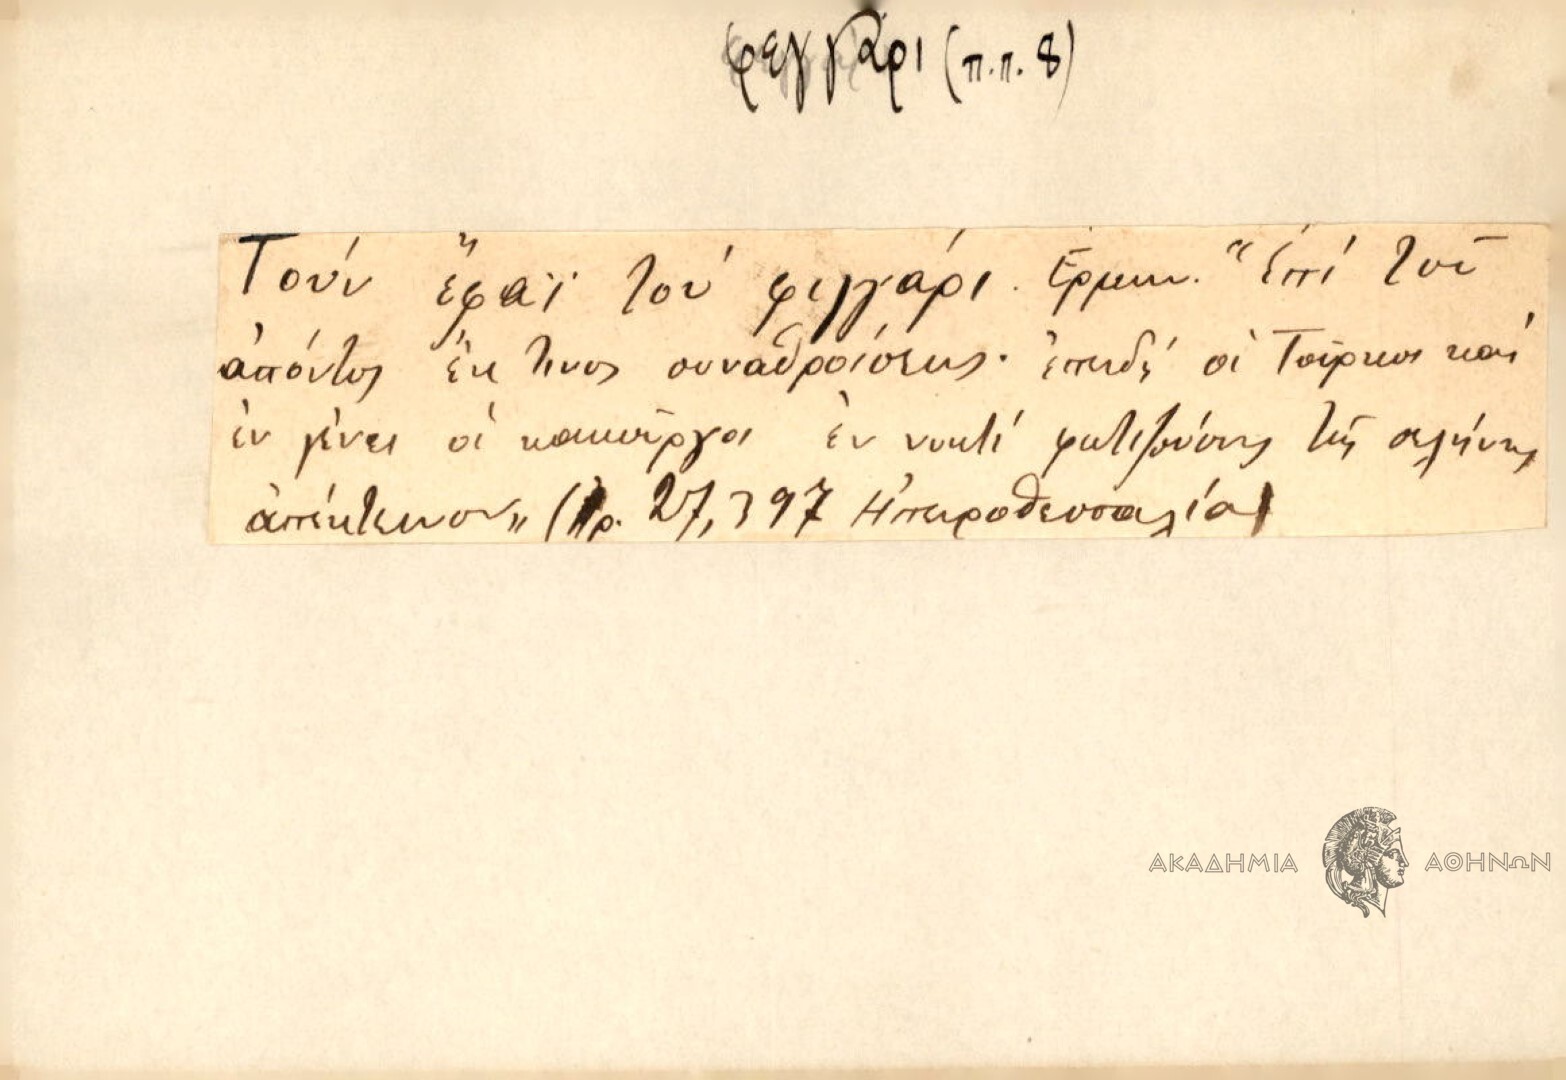 φεγγάρι (π.π. 8)
Τούν ἔφαϊ τού φιγγάρι. Ἑρμην. "Ἐπί τοῦ
ἀπόντος ἐκ τινος συναθροίσεως· ἐπειδή οἱ Τοῦρκοι καί
ἐν γένει οἱ κακοῦργοι ἐν νυκτί φωτιζούσης τῆς σελήνης
ἀπέκτεινον„ ( 27, 397 Ἠπειροθεσσαλία)
ΑΚΑΔΗΜΙΑ ΑΘΗΝΩΝ